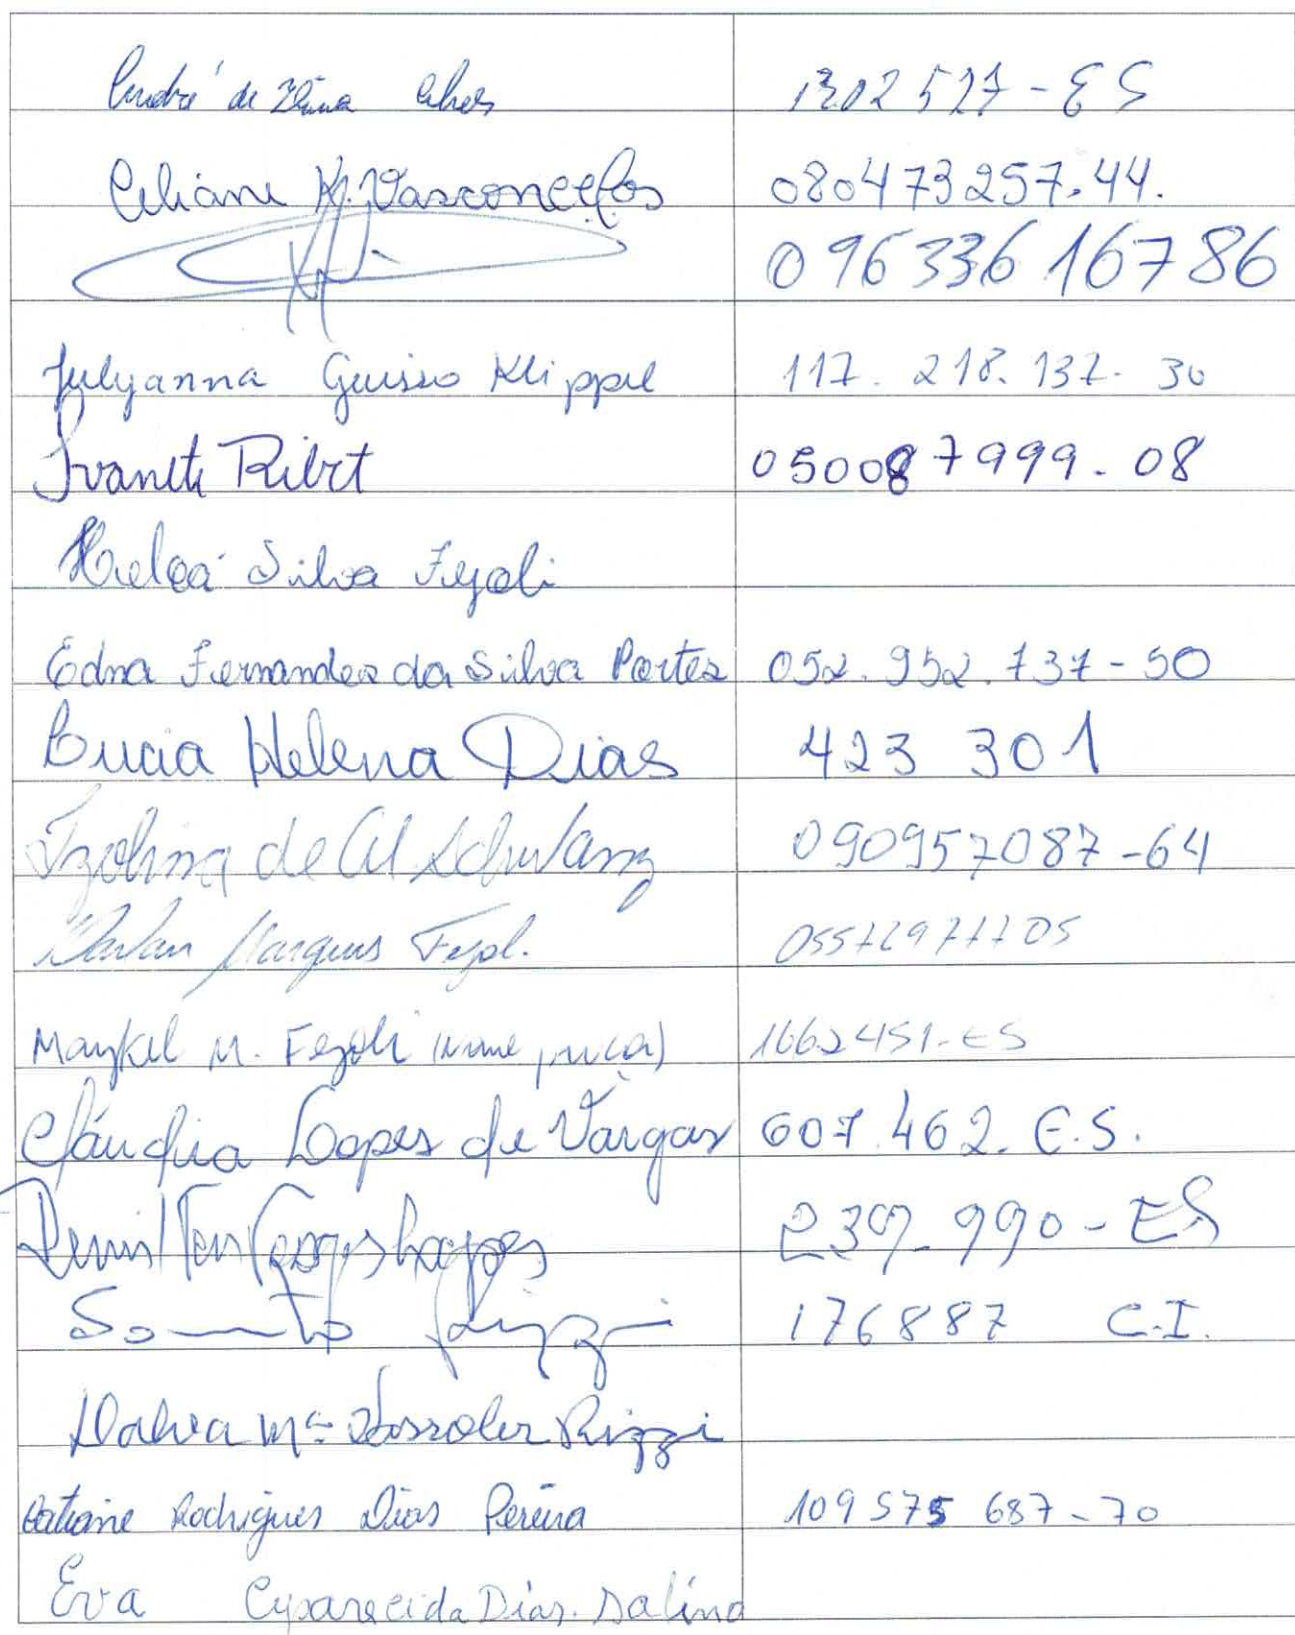 André de Lima Alves 1302527-ES
Celiane M. Vasconcellos 080473257-44.
09633616786
Julyanna Guisso Klippel 117. 218. 137. 30
Ivanete Ribet 050087999-08
Heloá Silva Fezoli
Edna Fernandes da Silva Portes 052.952.737-50
Lucia Helena Dias 423 301
de Schwanz 090957087-64
Marques 05572977705
Maykel M. Fezoli 1662451-ES
Cláudia Lopes de Vargas 607.462. E.S.
Lopes 239.990-ES
Rizzi 176887 C.I.
Dalva Mª Rizzi
Rodrigues Dias Pereira 109575 687-70
Eva Aparecida Dias. Salino